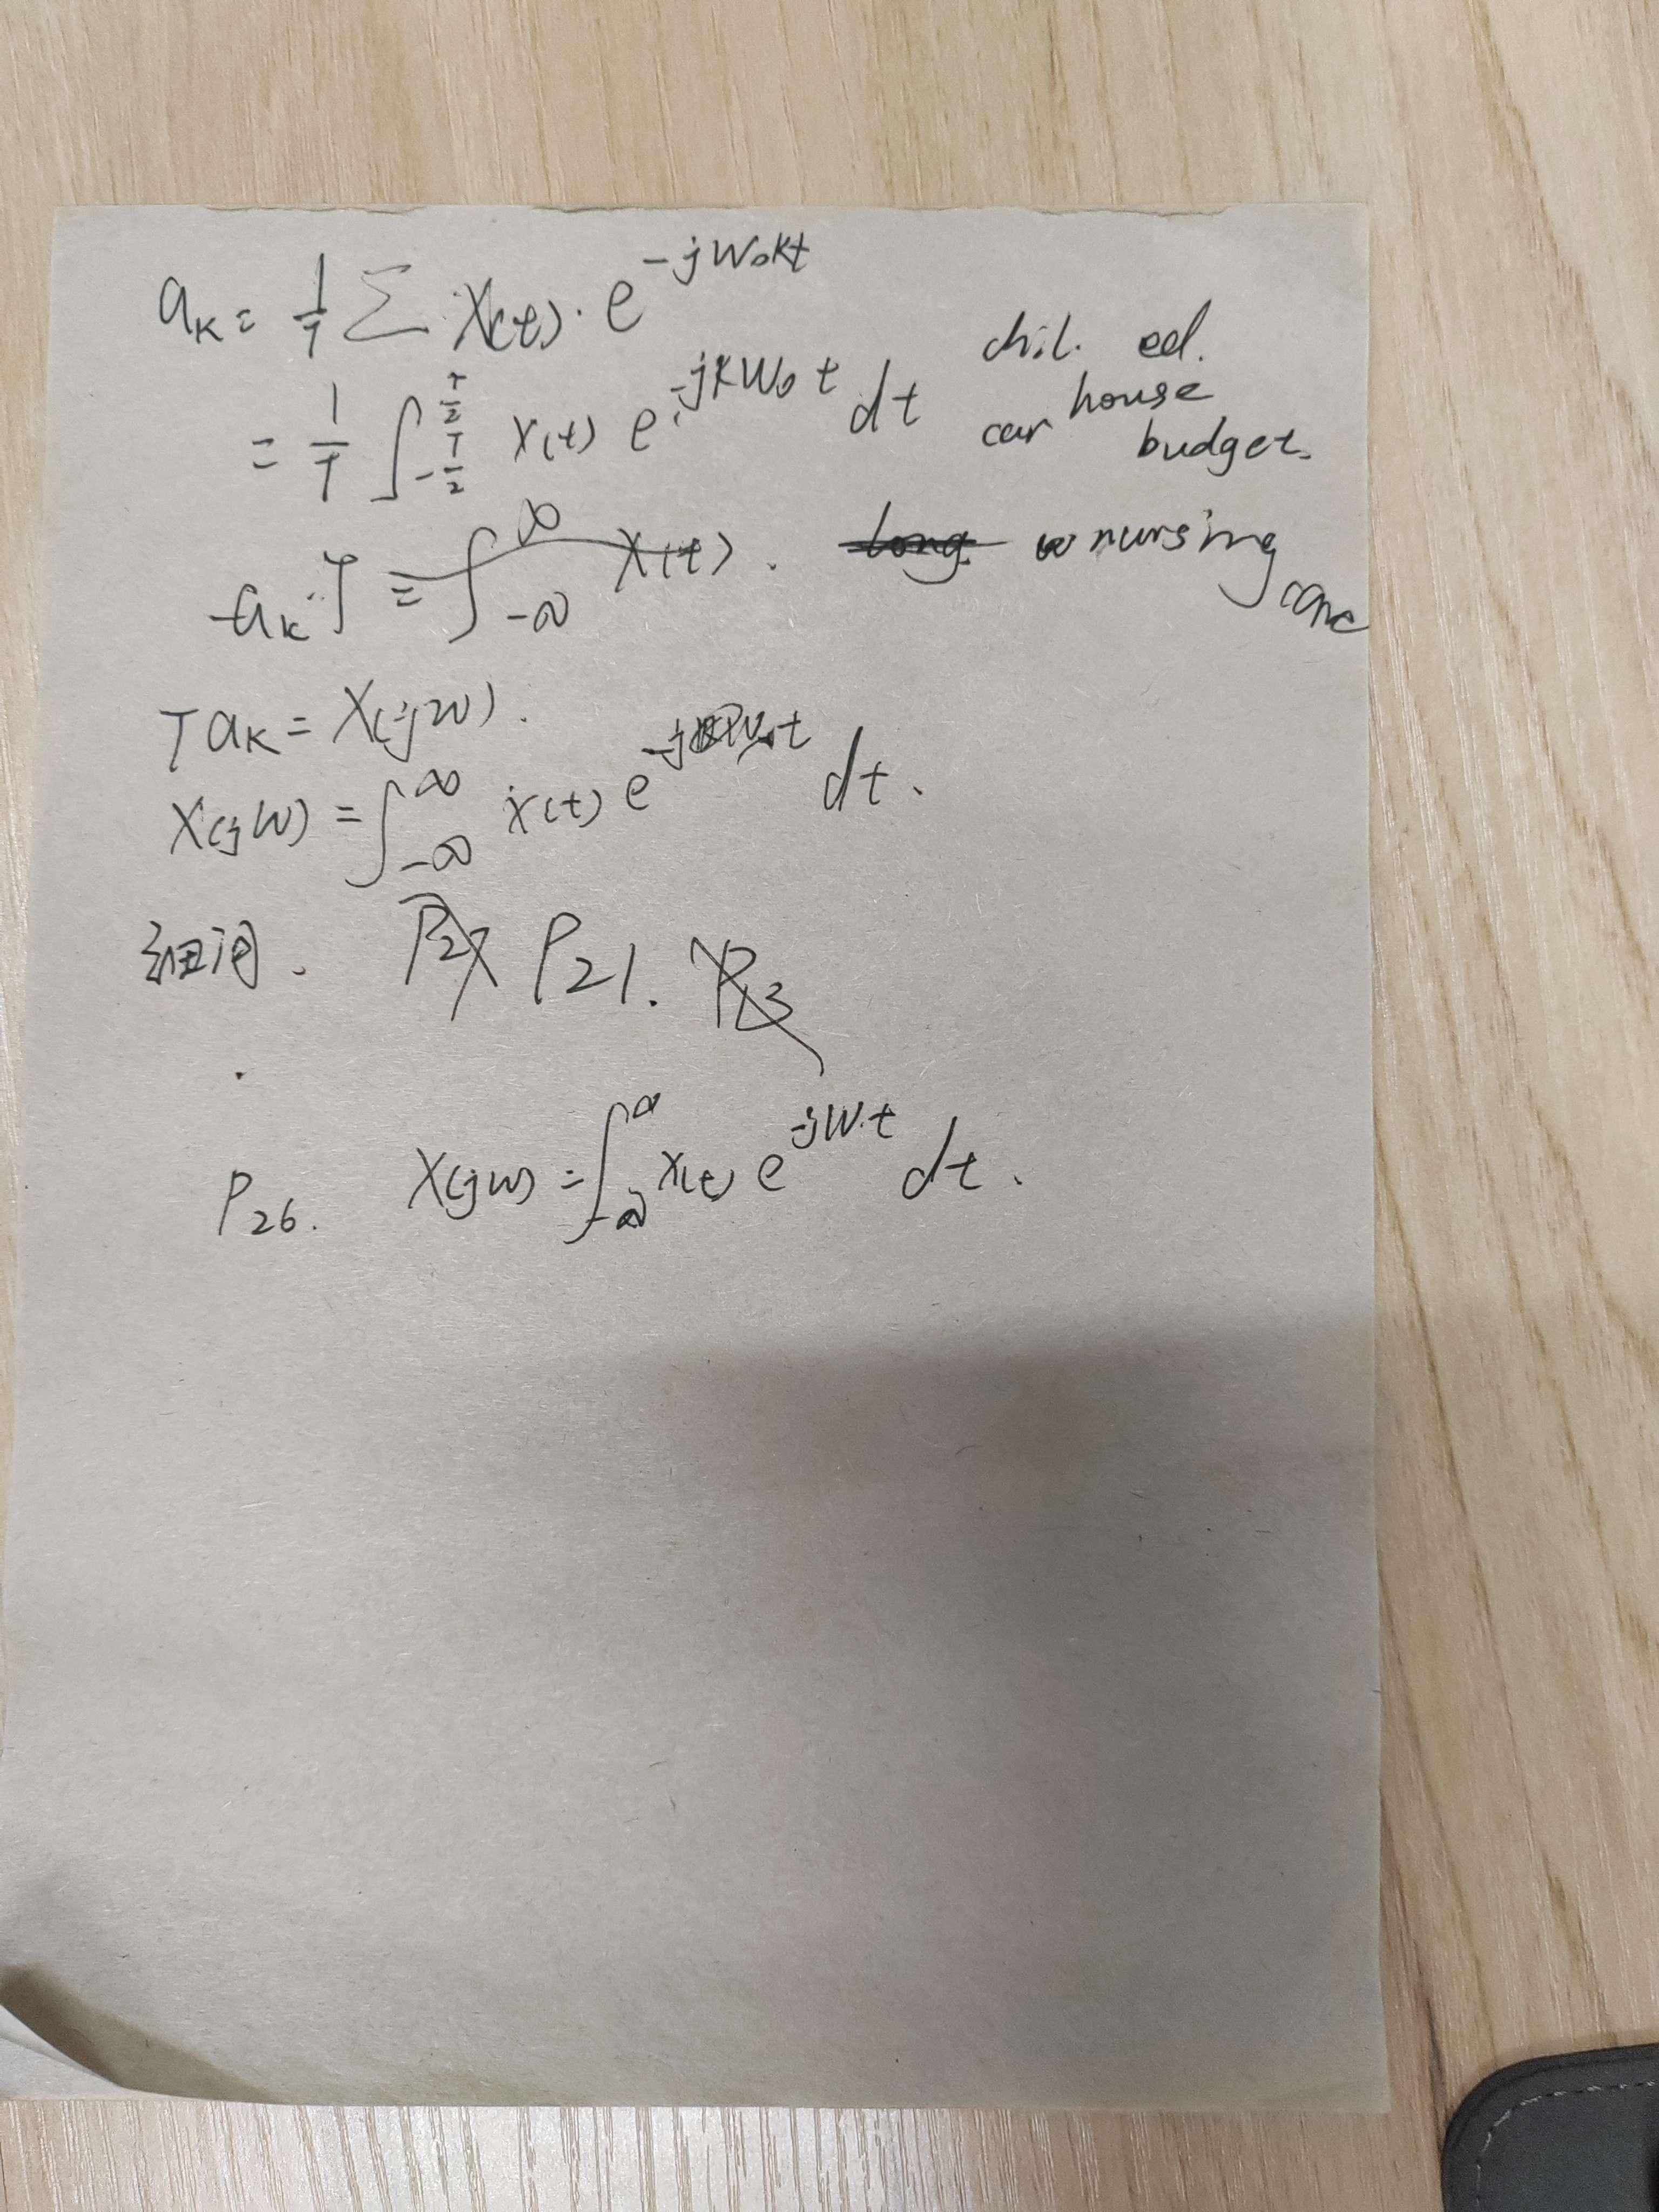 a_k = 1/T Σ x(t) · e^{-jw₀kt}
= 1/T ∫_{-T/2}^{T/2} x(t) e^{-jkw₀t} dt
chil. ed.
car house
budget.
a_k · T = ∫_{-∞}^{∞} x(t) .
Long. nursing care
T a_k = X(jw) .
X(jw) = ∫_{-∞}^{∞} x(t) e^{-jw₀t} dt .
P₂₁ .
P₂₆ . X(jw) = ∫_{-∞}^{∞} x(t) e^{-jw·t} dt .